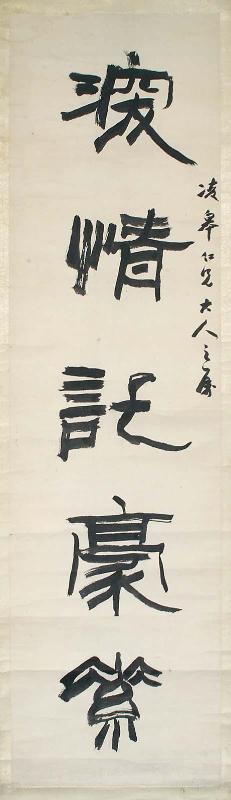 凌皋仁兄大人之屬
深情託豪素